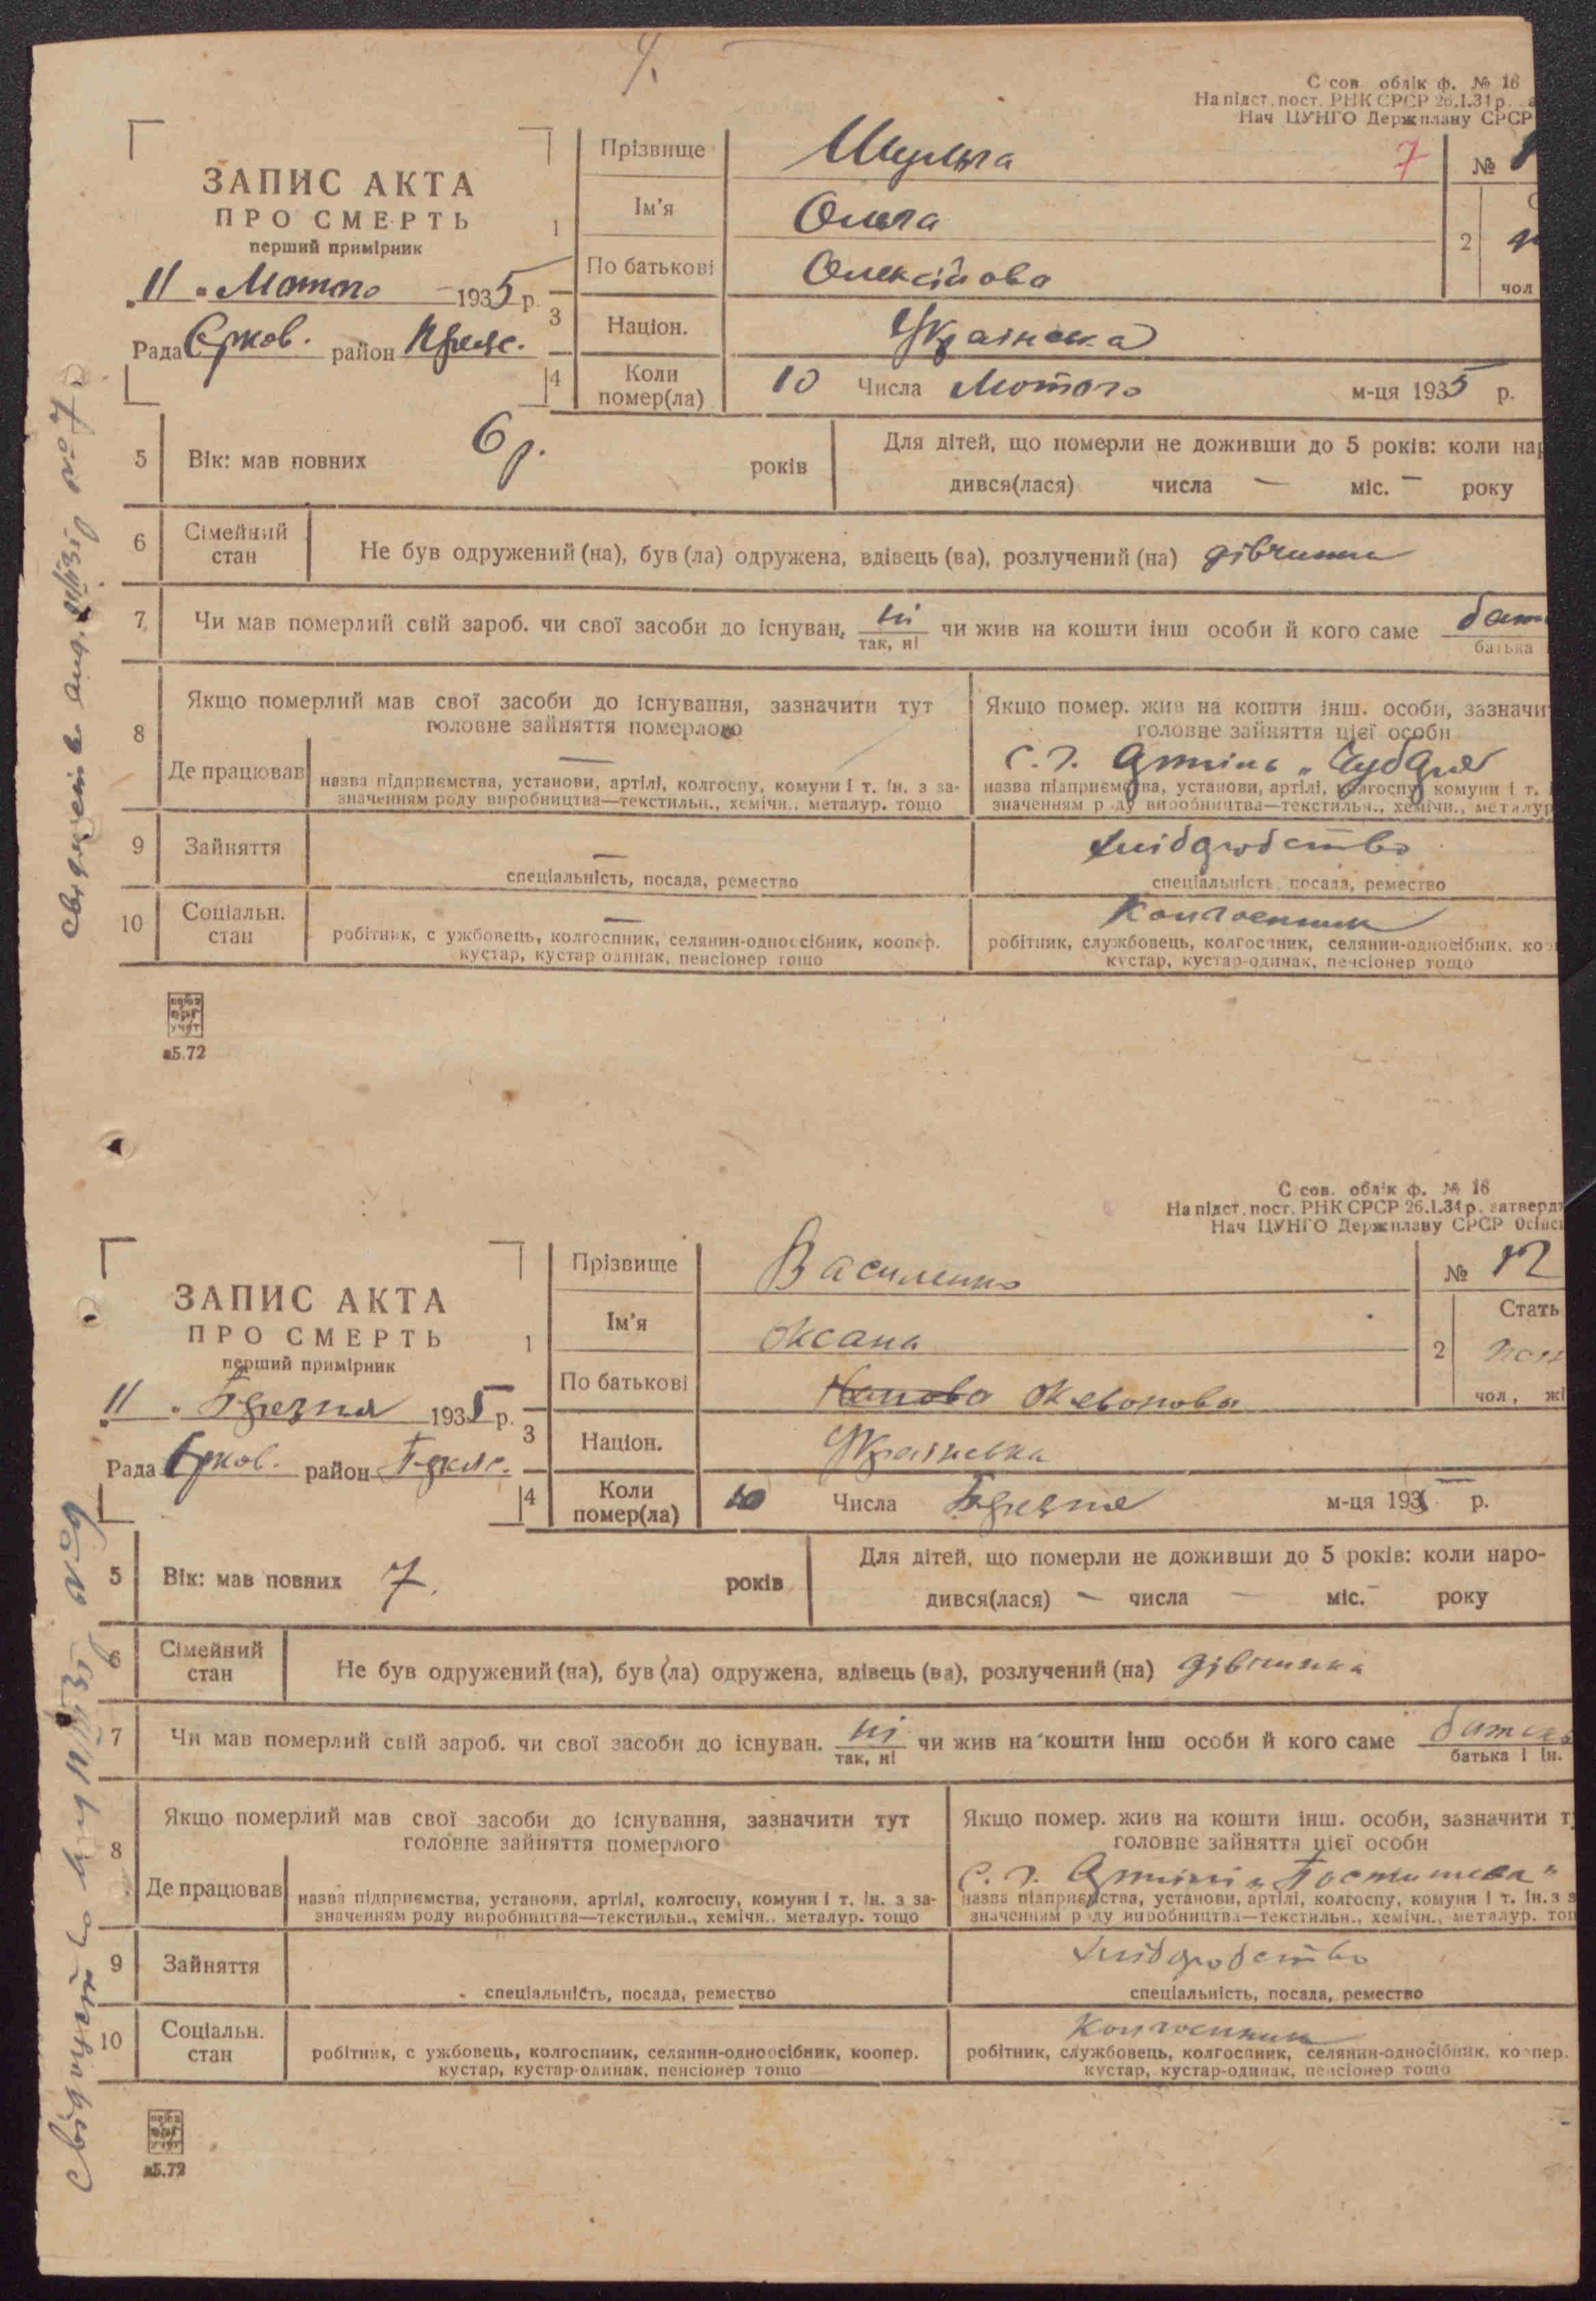 С сов. облік ф. № 16
На підст. пост. РНК СРСР 26.I.31 р.
Нач ЦУНГО Держплану СРСР
ЗАПИС АКТА
ПРО СМЕРТЬ
перший примірник
11 Лютого 1935 р.
Рада Єрков. район
1
Прізвище Шульга 7
№
Ім'я Ольга
2
По батькові Олексійова
чол
3 Націон. Українська
4 Коли помер(ла) 10 Числа Лютого м-ця 1935 р.
5 Вік: мав повних 6 р. років
Для дітей, що померли не доживши до 5 років: коли нар
дився(лася) числа — міс. — року
6 Сімейний стан Не був одружений (на), був (ла) одружена, вдівець (ва), розлучений (на) дівчина
7 Чи мав померлий свій зароб. чи свої засоби до існуван, ні чи жив на кошти інш особи й кого саме
так, ні батька
8 Якщо померлий мав свої засоби до існування, зазначити тут
головне зайняття померлого
Якщо помер. жив на кошти інш. особи, зазначи
головне зайняття цієї особи
Де працював —
назва підприємства, установи, артілі, колгоспу, комуни і т. ін. з за-
значенням роду виробництва—текстильн., хемічн., металур. тощо
С. Г. Артіль
назва підприємства, установи, артілі, колгоспу, комуни і т.
значенням роду виробництва—текстильн., хемічн., металур
9 Зайняття —
спеціальність, посада, ремество
хліборобство
спеціальність, посада, ремество
10 Соціальн. стан —
робітник, с ужбовець, колгоспник, селянин-односсібник, коопер.
кустар, кустар одинак, пенсіонер тощо
Колгоспник
робітник, службовець, колгоспник, селянин-односібник. ко
кустар, кустар-одинак, пенсіонер тощо
а5.72
С сов. облік ф. № 16
На підст. пост. РНК СРСР 26.I.31 р. затверд
Нач ЦУНГО Держплану СРСР Осінс
ЗАПИС АКТА
ПРО СМЕРТЬ
перший примірник
11 Березня 1935 р.
Рада Єрков. район
1
Прізвище Василенко
№ 12
Ім'я Оксана
2 Стать
По батькові
чол, жі
3 Націон. Українська
4 Коли помер(ла) 10 Числа Березня м-ця 1935 р.
5 Вік: мав повних 7. років
Для дітей, що померли не доживши до 5 років: коли наро-
дився(лася) — числа — міс. — року
6 Сімейний стан Не був одружений (на), був (ла) одружена, вдівець (ва), розлучений (на) дівчинка
7 Чи мав померлий свій зароб. чи свої засоби до існуван. ні чи жив на кошти інш особи й кого саме
так, ні батька і ін.
8 Якщо померлий мав свої засоби до існування, зазначити тут
головне зайняття померлого
Якщо помер. жив на кошти інш. особи, зазначити т
головне зайняття цієї особи
Де працював
назва підприємства, установи, артілі, колгоспу, комуни і т. ін. з за-
значенням роду виробництва—текстильн., хемічн., металур. тощо
С. Г. Артілі „Постишева"
назва підприємства, установи, артілі, колгоспу, комуни і т. ін. з з
значенням роду виробництва—текстильн., хемічн., металур. тощ
9 Зайняття
спеціальність, посада, ремество
хліборобство
спеціальність, посада, ремество
10 Соціальн. стан
робітник, с ужбовець, колгоспник, селянин-односсібник, коопер.
кустар, кустар-одинак, пенсіонер тощо
Колгоспник
робітник, службовець, колгоспник, селянин-односібник, коопер.
кустар, кустар-одинак, пенсіонер тощо
а5.72